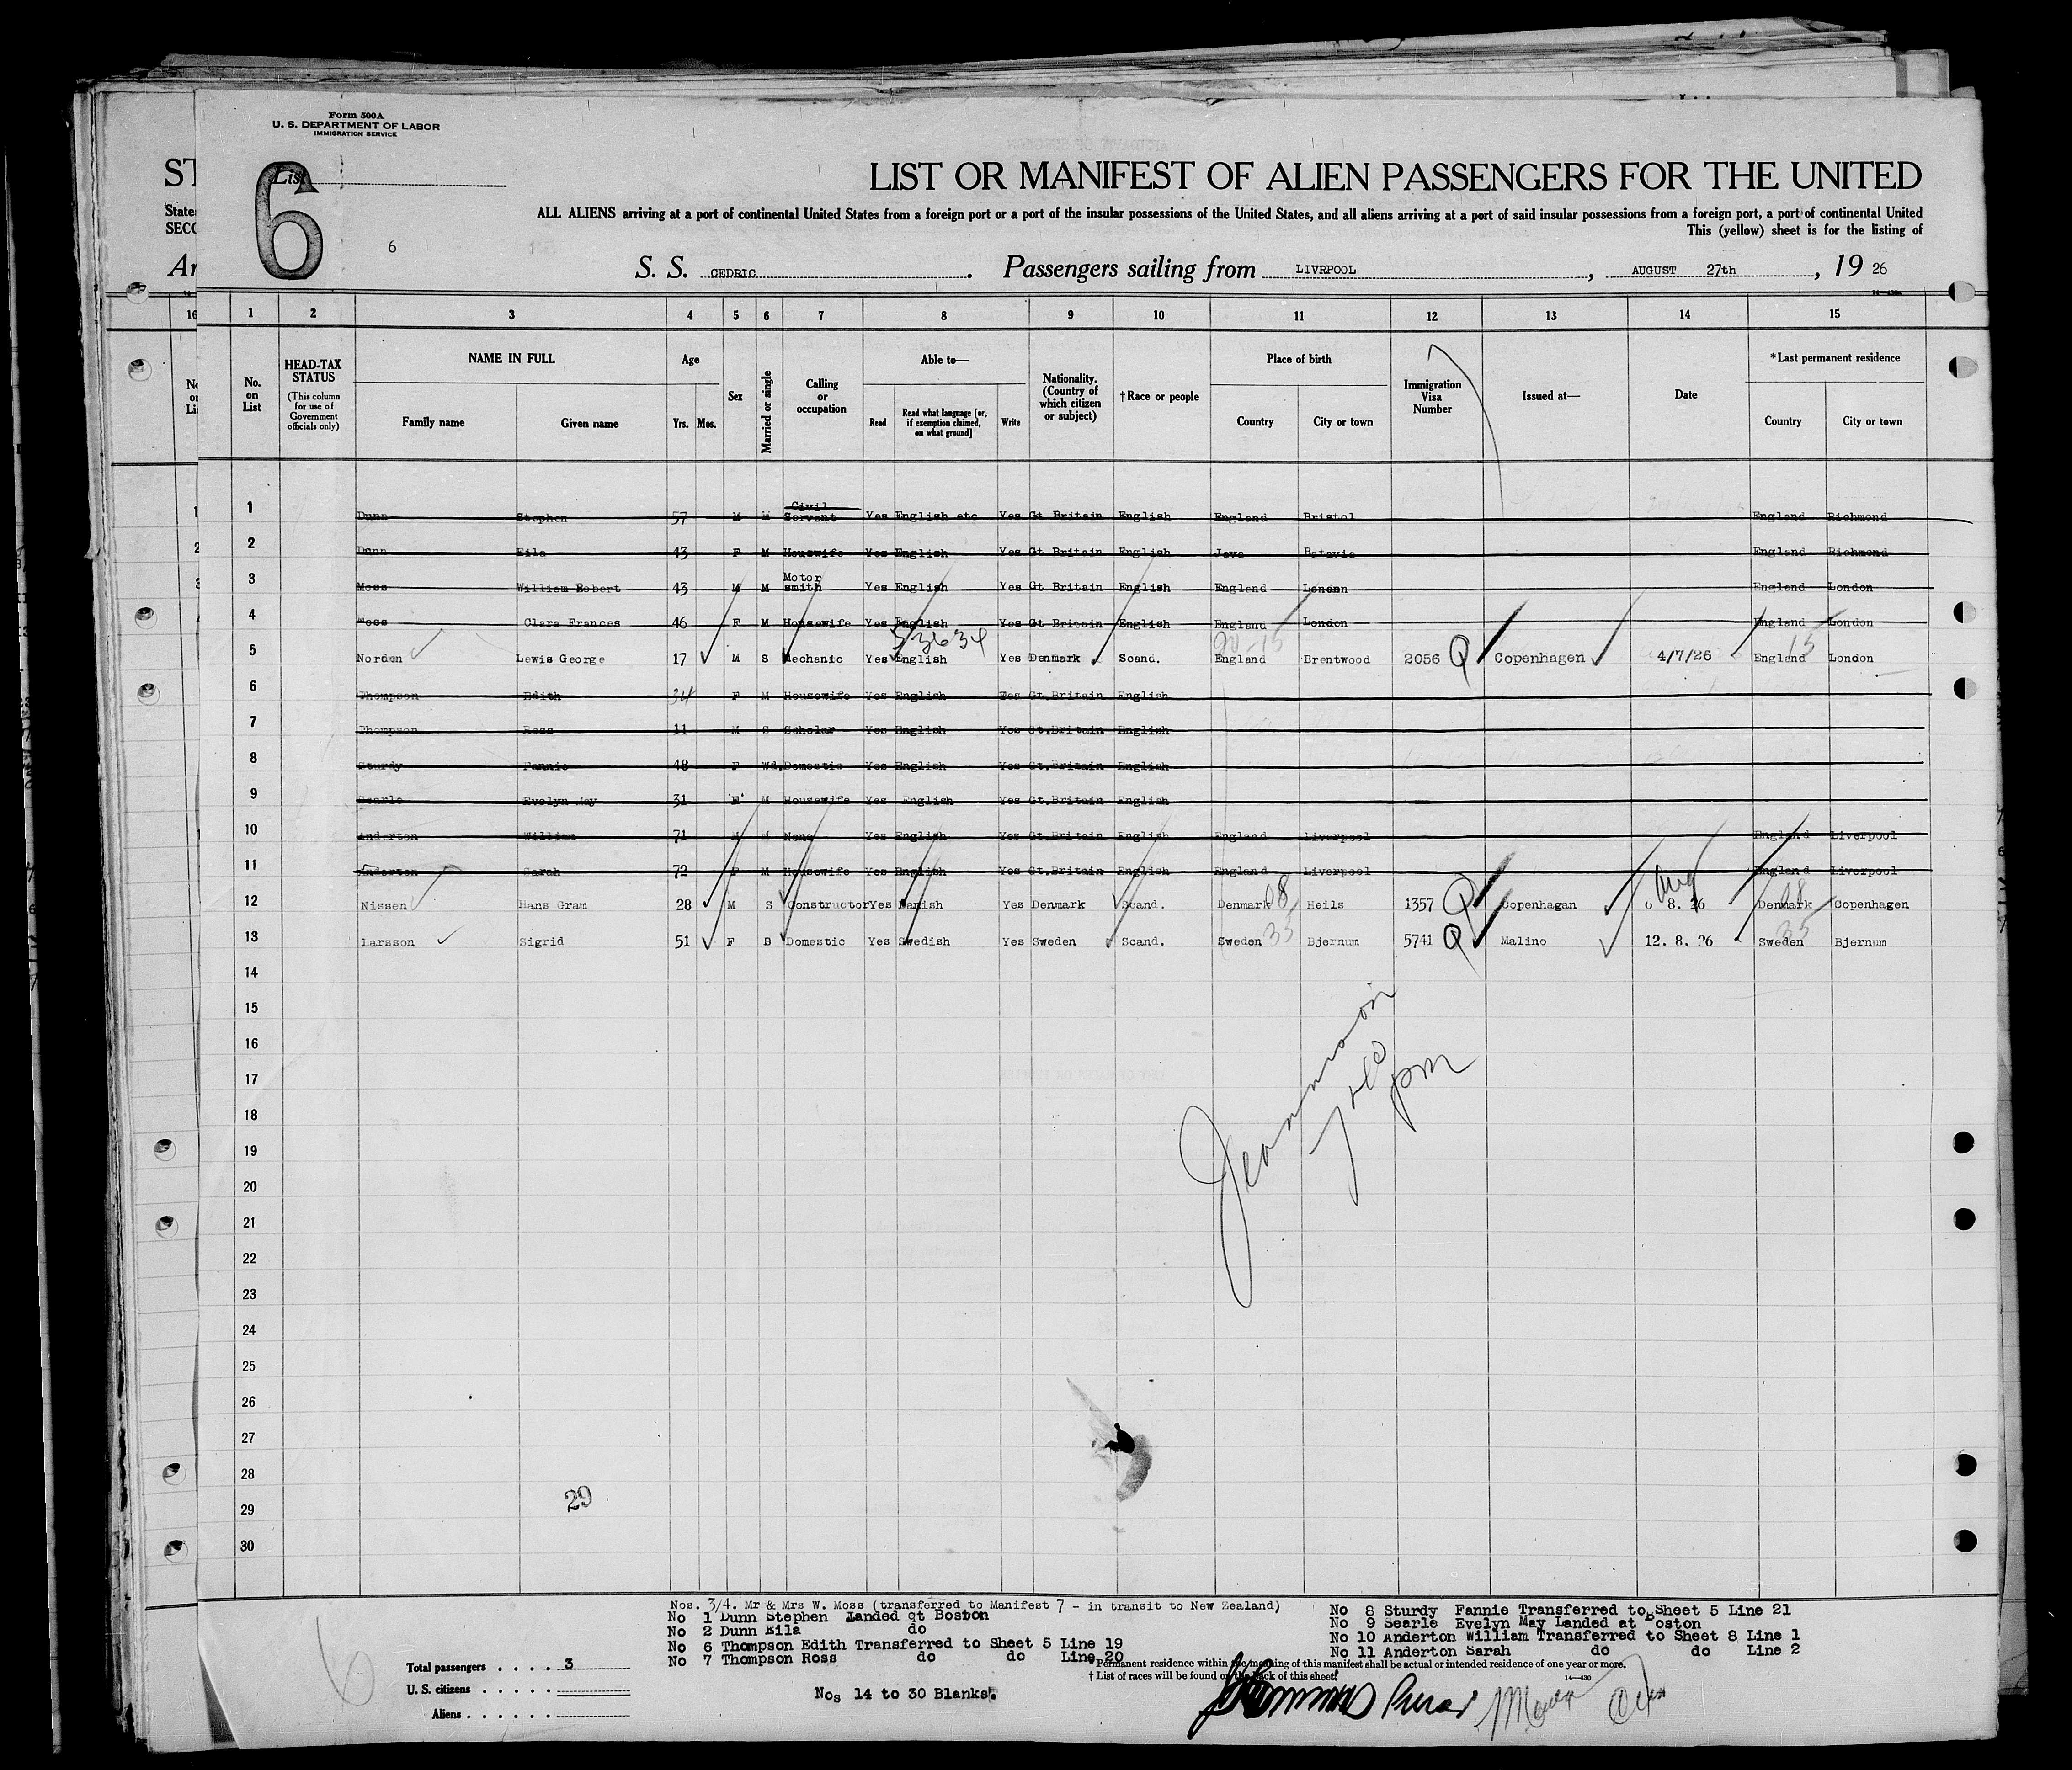 Form 500A
U. S. DEPARTMENT OF LABOR
IMMIGRATION SERVICE
List
6
6
ST
LIST OR MANIFEST OF ALIEN PASSENGERS FOR THE UNITED
State
SECO
ALL ALIENS arriving at a port of continental United States from a foreign port or a port of the insular possessions of the United States, and all aliens arriving at a port of said insular possessions from a foreign port, a port of continental United
This (yellow) sheet is for the listing of
Ar
S. S. CEDRIC. Passengers sailing from LIVRPOOL, AUGUST 27th, 19 26
16 1 2 3 4 5 6 7 8 9 10 11 12 13 14 15
No. on List
HEAD-TAX STATUS
(This column for use of Government officials only)
NAME IN FULL
Family name Given name
Age
Yrs. Mos.
Sex
Married or single
Calling or occupation
Able to—
Read
Read what language [or, if exemption claimed, on what ground]
Write
Nationality. (Country of which citizen or subject)
†Race or people
Place of birth
Country City or town
Immigration Visa Number
Issued at—
Date
*Last permanent residence
Country City or town
1 Dunn Stephen 57 M M Civil Servant Yes English etc Yes Gt Britain English England Bristol England Richmond
2 Dunn Eila 43 F M Housewife Yes English Yes Gt Britain English Java Batavia England Richmond
3 Moss William Robert 43 M M Motor smith Yes English Yes Gt Britain English England London England London
4 Moss Clara Frances 46 F M Housewife Yes English Yes Gt Britain English England London England London
53634
5 Norden Lewis George 17 M S Mechanic Yes English Yes Denmark Scand. England Brentwood 2056 Q Copenhagen 4/7/26 England 15 London
6 Thompson Edith 34 F M Housewife Yes English Yes Gt.Britain English
7 Thompson Ross 11 M S Scholar Yes English Yes Gt.Britain English
8 Sturdy Fannie 48 F Wd. Domestic Yes English Yes Gt.Britain English
9 Searle Evelyn May 31 F M Housewife Yes English Yes Gt.Britain English
10 Anderton William 71 M M None Yes English Yes Gt.Britain English England Liverpool England Liverpool
11 Anderton Sarah 72 F M Housewife Yes English Yes Gt.Britain English England Liverpool England Liverpool
Aug
12 Nissen Hans Gram 28 M S Constructor Yes Danish Yes Denmark Scand. Denmark 08 Heils 1357 Q Copenhagan 8. 26 Denmark 08 Copenhagen
13 Larsson Sigrid 51 F S Domestic Yes Swedish Yes Sweden Scand. Sweden 35 Bjernum 5741 Q Malino 12. 8. 26 Sweden 35 Bjernum
14
15
16
17
18
19
20
21
22
23
24
25
26
27
28
29
30
pm
29
Nos. 3/4. Mr & Mrs W. Moss (transferred to Manifest 7 - in transit to New Zealand)
No 1 Dunn Stephen Landed at Boston
No 2 Dunn Eila do
No 6 Thompson Edith Transferred to Sheet 5 Line 19
No 7 Thompson Ross do do Line 20
No 8 Sturdy Fannie Transferred to Sheet 5 Line 21
No 9 Searle Evelyn May Landed at Boston
No 10 Anderton William Transferred to Sheet 8 Line 1
No 11 Anderton Sarah do do Line 2
6
Total passengers . . . . 3
U. S. citizens . . . . .
Aliens . . . . . .
Nos 14 to 30 Blanks.
* Permanent residence within the meaning of this manifest shall be actual or intended residence of one year or more.
† List of races will be found on the back of this sheet.
14—430